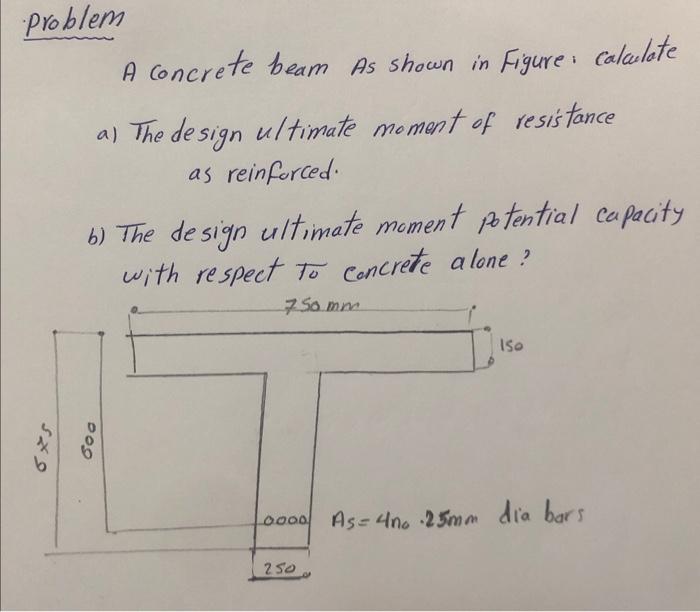 Problem
A concrete beam As shown in Figure: calculate
a) The design ultimate moment of resistance
as reinforced.
b) The design ultimate moment potential capacity
with respect To concrete alone?
750 mm
150
675
600
0000 As = 4no .25mm dia bars
250